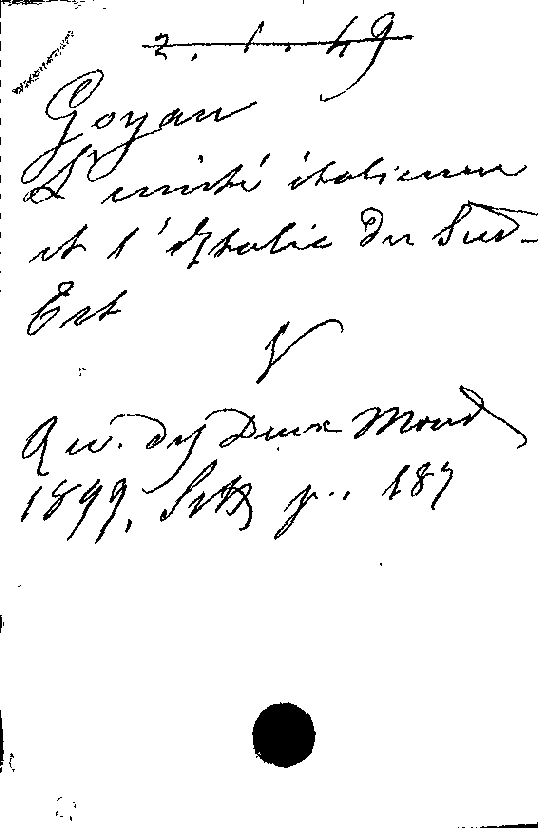 2. 1. 49
Goyau
L'unité italienne
et l'Italie du Sud-
Est
V
Rev. des Deux Mond
1899, Sett. p. 187